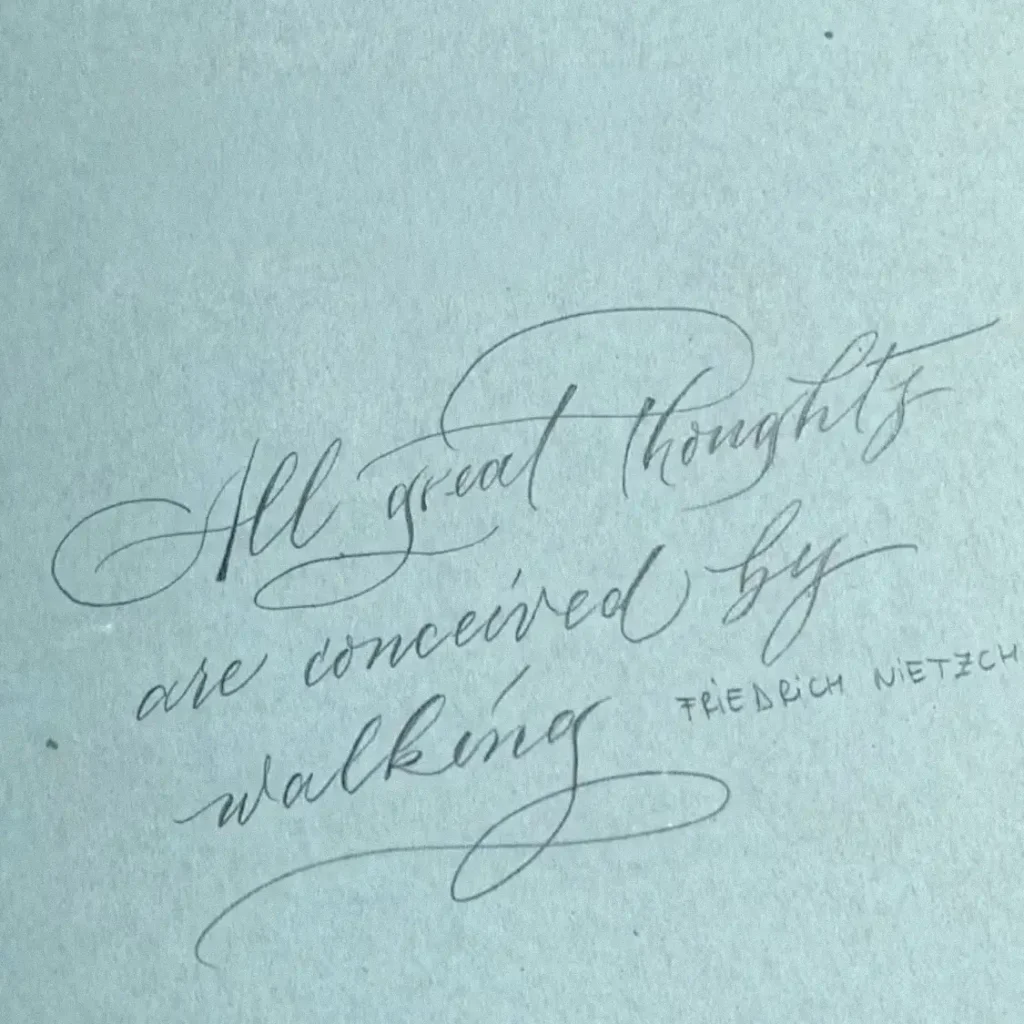 All great thoughts
are conceived by
walking
FRIEDRICH NIETZCH